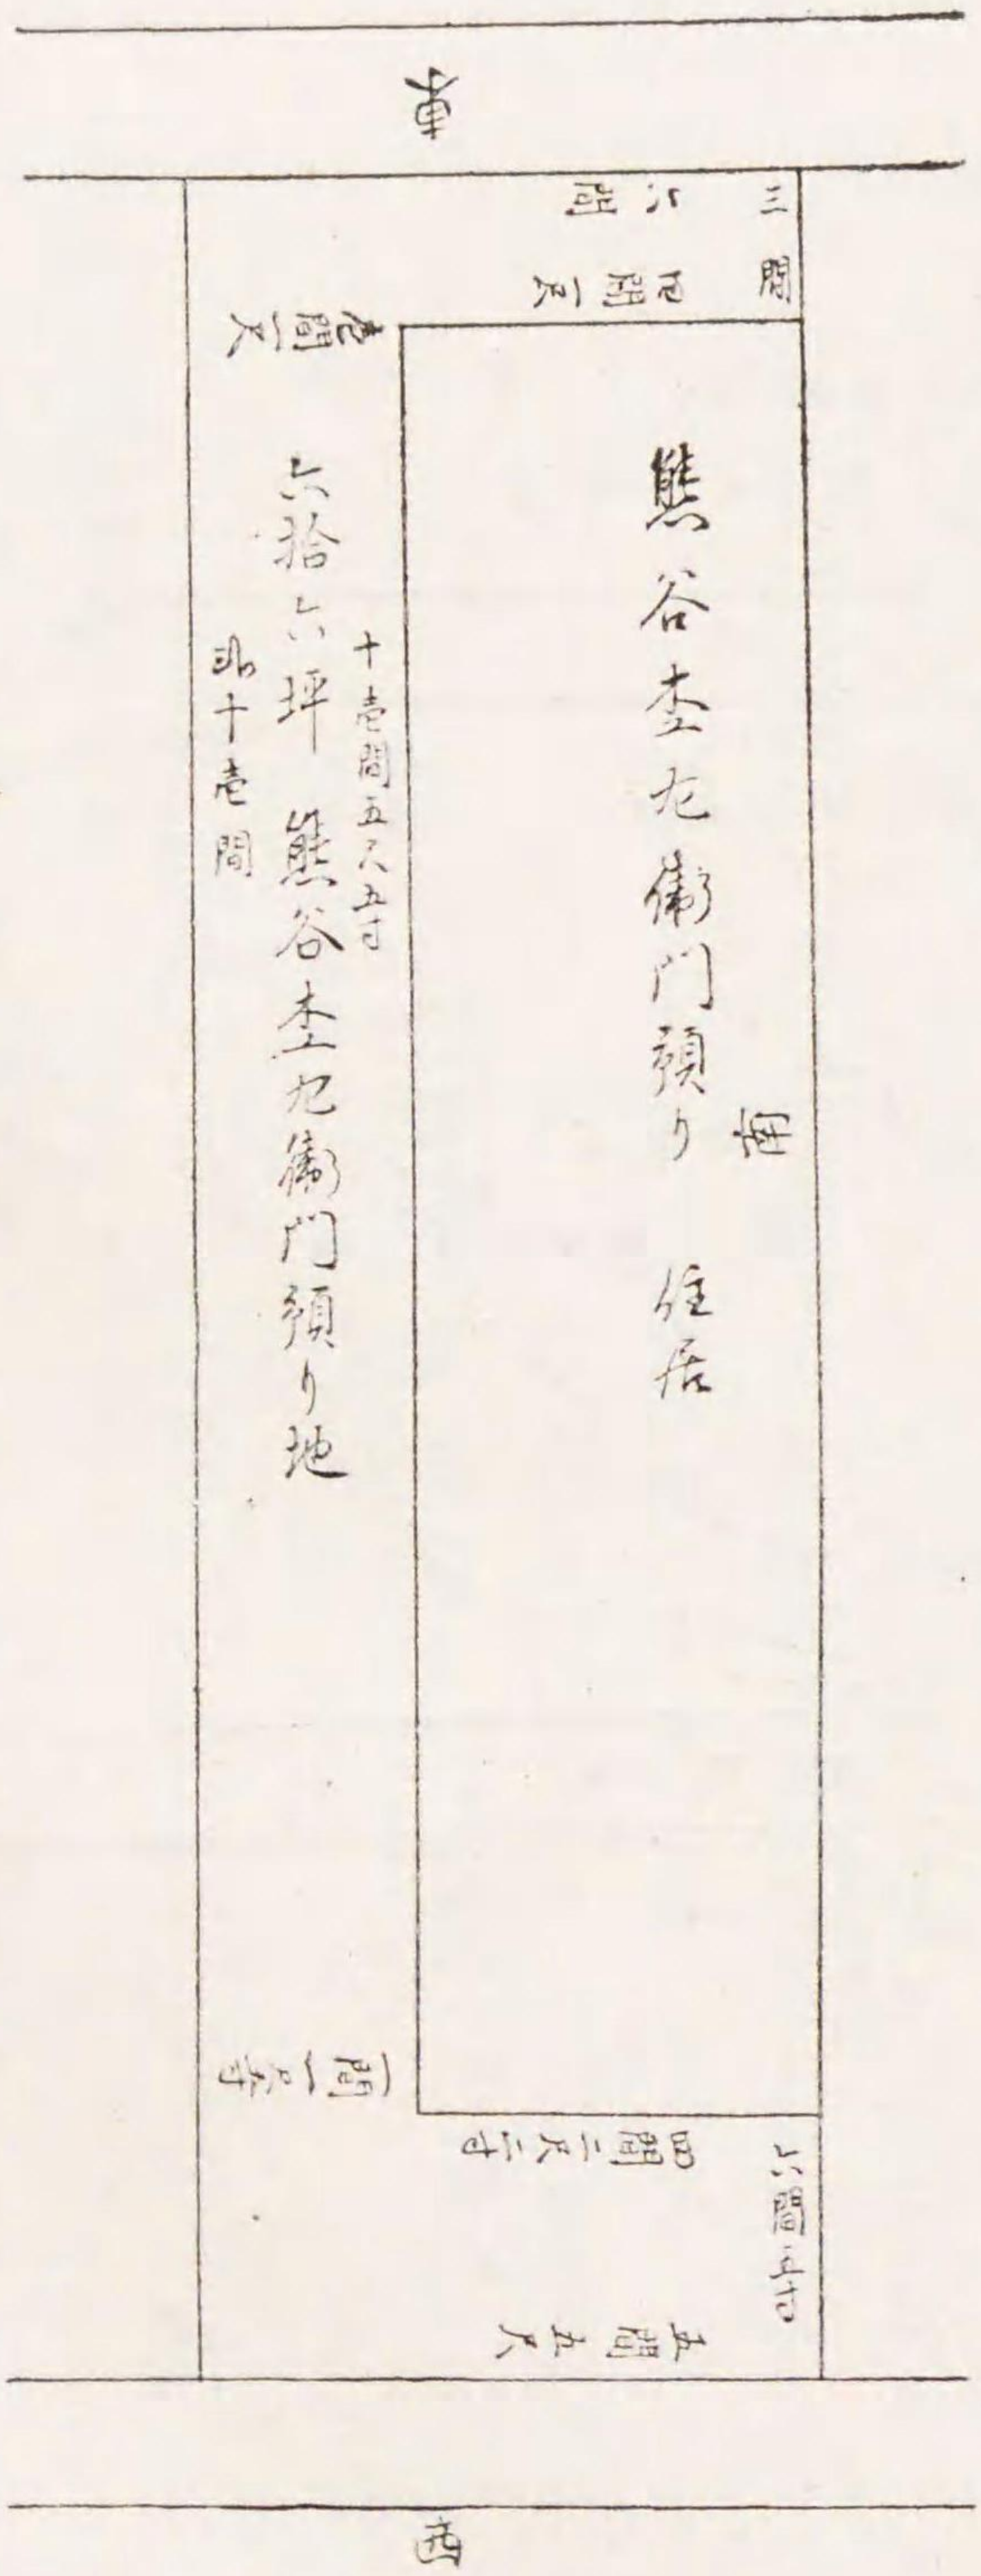 東
三間
六間
四間一尺
壱間一尺
熊谷杢左衛門預り 住居
南
十壱間五尺五寸
六拾六坪 熊谷杢左衛門預り地
十壱間
一間一尺
四間二尺二寸
六間
五間五尺
西